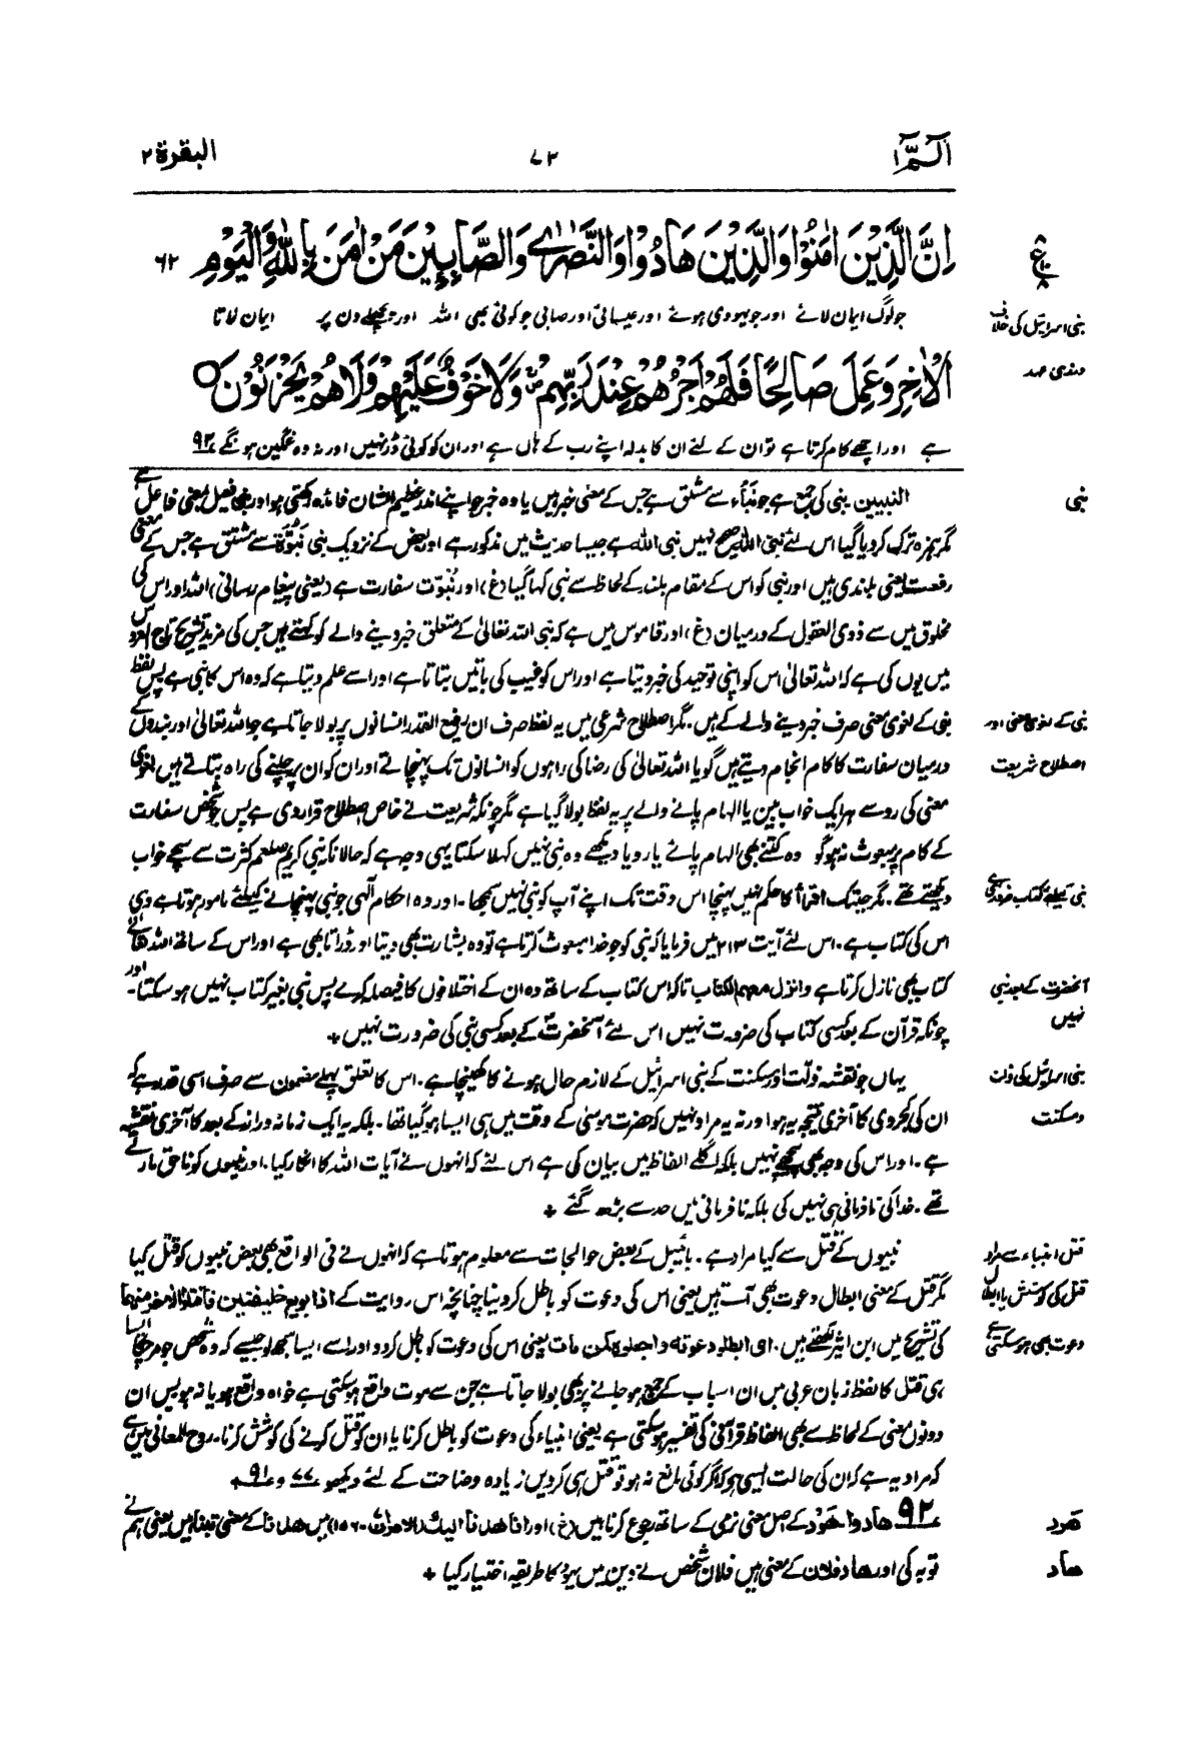 الٓمّٓ ١
٧٢
البقرة ٢
اِنَّ الَّذِيْنَ اٰمَنُوْا وَالَّذِيْنَ هَادُوْا وَالنَّصٰرٰى وَالصَّابِـِٕيْنَ مَنْ اٰمَنَ بِاللّٰهِ وَالْيَوْمِ ٦٢
جو لوگ ایمان لائے اور جو یہودی ہوئے اور عیسائی اور صابی جو کوئی بھی اللہ اور پچھلے دن پر ایمان لاتا
بنی اسرائیل کی خلاف
الْاٰخِرِ وَعَمِلَ صَالِحًا فَلَهُمْ اَجْرُهُمْ عِنْدَ رَبِّهِمْ وَلَا خَوْفٌ عَلَيْهِمْ وَلَا هُمْ يَحْزَنُوْنَ ○
ورزی عہد
ہے اور اچھے کام کرتا ہے تو ان کے لئے ان کا بدلہ اپنے رب کے ہاں ہے اور ان کو کوئی ڈر نہیں اور نہ وہ غمگین ہونگے ٩٢
نبی
النبیین۔ نبی کی جمع ہے جو نَبَأٌ سے مشتق ہے جس کے معنی خبر ہیں یا وہ خبر جو اپنے اندر عظیم الشان فائدہ رکھتی ہو اور نبی فعیل بمعنی فاعل ہے
مگر ہمزہ ترک کر دیا گیا اس لئے نبیٔ اللہ صحیح نہیں نبی اللہ ہے جیسا حدیث میں مذکور ہے اور بعض کے نزدیک نبی نَبُوَّۃ سے مشتق ہے جس کے معنی
رفعت یعنی بلندی ہیں اور نبی کو اس کے مقام بلند کے لحاظ سے نبی کہا گیا (غ) اور نُبُوّت سفارت ہے (یعنی پیغام رسانی) اللہ اور اس کی
مخلوق میں سے ذوی العقول کے درمیان (غ) اور قاموس میں ہے کہ نبی اللہ تعالیٰ کے متعلق خبر دینے والے کو کہتے ہیں جس کی مزید تشریح تاج العروس
میں یوں کی ہے کہ اللہ تعالیٰ اس کو اپنی توحید کی خبر دیتا ہے اور اس کو غیب کی باتیں بتاتا ہے اور اسے علم دیتا ہے کہ وہ اس کا نبی ہے پس لفظ
نبی کے لغوی معنی اور
نبی کے لغوی معنی صرف خبر دینے والے کے ہیں۔ مگر اصطلاح شرعی میں یہ لفظ صرف ان رفیع القدر انسانوں پر بولا جاتا ہے جو اللہ تعالیٰ اور بندوں کے
اصطلاح شریعت
درمیان سفارت کا کام انجام دیتے ہیں گویا اللہ تعالیٰ کی رضا کی راہوں کو انسانوں تک پہنچاتے اور ان کو ان پر چلنے کی راہ بتاتے ہیں لغوی
معنی کی رو سے ہر ایک خواب بین یا الہام پانے والے پر یہ لفظ بولا گیا ہے مگر چونکہ شریعت نے خاص اصطلاح قرار دی ہے پس جو شخص سفارت
کے کام پر مبعوث نہ ہو گو وہ کتنے بھی الہام پائے یا رویا دیکھے وہ نبی نہیں کہلا سکتا یہی وجہ ہے کہ حالانکہ نبی کریم صلعم کثرت سے سچے خواب
نبی کیلئے کتاب ضروری ہے
دیکھتے تھے۔ مگر جبتک اقرأ کا حکم نہیں پہنچا اس وقت تک اپنے آپ کو نبی نہیں سمجھا۔ اور وہ احکام الٰہی جو نبی پہنچانے کیلئے مامور ہوتا ہے وہی
اس کی کتاب ہے۔ اس لئے آیت ٢١٣ میں فرمایا کہ نبی کو جو خدا مبعوث کرتا ہے تو وہ بشارت بھی دیتا اور ڈراتا بھی ہے اور اس کے ساتھ اللہ تعالیٰ
آنحضرت کے بعد نبی
کتاب بھی نازل کرتا ہے وانزل معہم الکتاب تاکہ اس کتاب کے ساتھ وہ ان کے اختلافوں کا فیصلہ کرے پس نبی بغیر کتاب نہیں ہو سکتا۔ اور
نہیں
چونکہ قرآن کے بعد کسی کتاب کی ضرورت نہیں اس لئے آنحضرتؐ کے بعد کسی نبی کی ضرورت نہیں +
بنی اسرائیل کی ذلت
یہاں جو نقشہ ذلت اور مسکنت کے بنی اسرائیل کے لازم حال ہونے کا کھینچا ہے۔ اس کا تعلق پہلے مضمون سے صرف اسی قدر ہے کہ
ومسکنت
ان کی کجروی کا آخری نتیجہ یہ ہوا ورنہ یہ مراد نہیں کہ حضرت موسیٰ کے وقت میں ہی ایسا ہو گیا تھا۔ بلکہ یہ ایک زمانہ دراز کے بعد کا آخری نقشہ
ہے۔ اور اس کی وجہ بھی پیچھے نہیں بلکہ اگلے الفاظ میں بیان کی ہے اس لئے کہ انہوں نے آیات اللہ کا انکار کیا۔ اور نبیوں کو ناحق مارتے
تھے۔ خدا کی نافرمانی ہی نہیں کی بلکہ نافرمانی میں حد سے بڑھ گئے +
قتل انبیاء سے مراد
نبیوں کے قتل سے کیا مراد ہے۔ بائیبل کے بعض حوالجات سے معلوم ہوتا ہے کہ انہوں نے فی الواقع بھی بعض نبیوں کو قتل کیا
قتل کی کوشش یا ابطال
مگر قتل کے معنی ابطال دعوت بھی آتے ہیں یعنی اس کی دعوت کو باطل کر دینا چنانچہ اس روایت کے اذا بویع خلیفتین فاقتلوا الاٰخر منہما
دعوت بھی ہو سکتی ہے
کی تشریح میں ابن اثیر لکھتے ہیں۔ ای ابطلوا دعوتہ واجعلوہ کمن مات یعنی اس کی دعوت کو باطل کر دو اور اسے ایسا سمجھ لو جیسے کہ وہ شخص جو مر چکا ایسا
ہی قتل کا لفظ زبان عربی میں ان اسباب کے جمع ہو جانے پر بھی بولا جاتا ہے جن سے موت واقع ہو سکتی ہے خواہ واقع ہو یا نہ ہو پس ان
دونوں معنی کے لحاظ سے بھی الفاظ قرآنی کی تفسیر ہو سکتی ہے یعنی انبیاء کی دعوت کو باطل کرنا یا ان کو قتل کرنے کی کوشش کرنا۔ روح المعانی میں ہے
کہ مراد یہ ہے کہ ان کی حالت ایسی ہو کہ اگر کوئی مانع نہ ہو تو قتل ہی کردیں زیادہ وضاحت کے لئے دیکھو ٧٧ و ٩١ +
ھود
٩٢ ھادوا ھَوْد کے اصل معنی نرمی کے ساتھ رجوع کرنا ہیں (غ) اور انا ھدنا الیک (الاعراف ١٥٦) میں ھدنا کے معنی تبنا ہیں یعنی ہم نے
ھاد
توبہ کی اور ھاد فلان کے معنی ہیں فلاں شخص نے دین میں یہود کا طریقہ اختیار کیا +